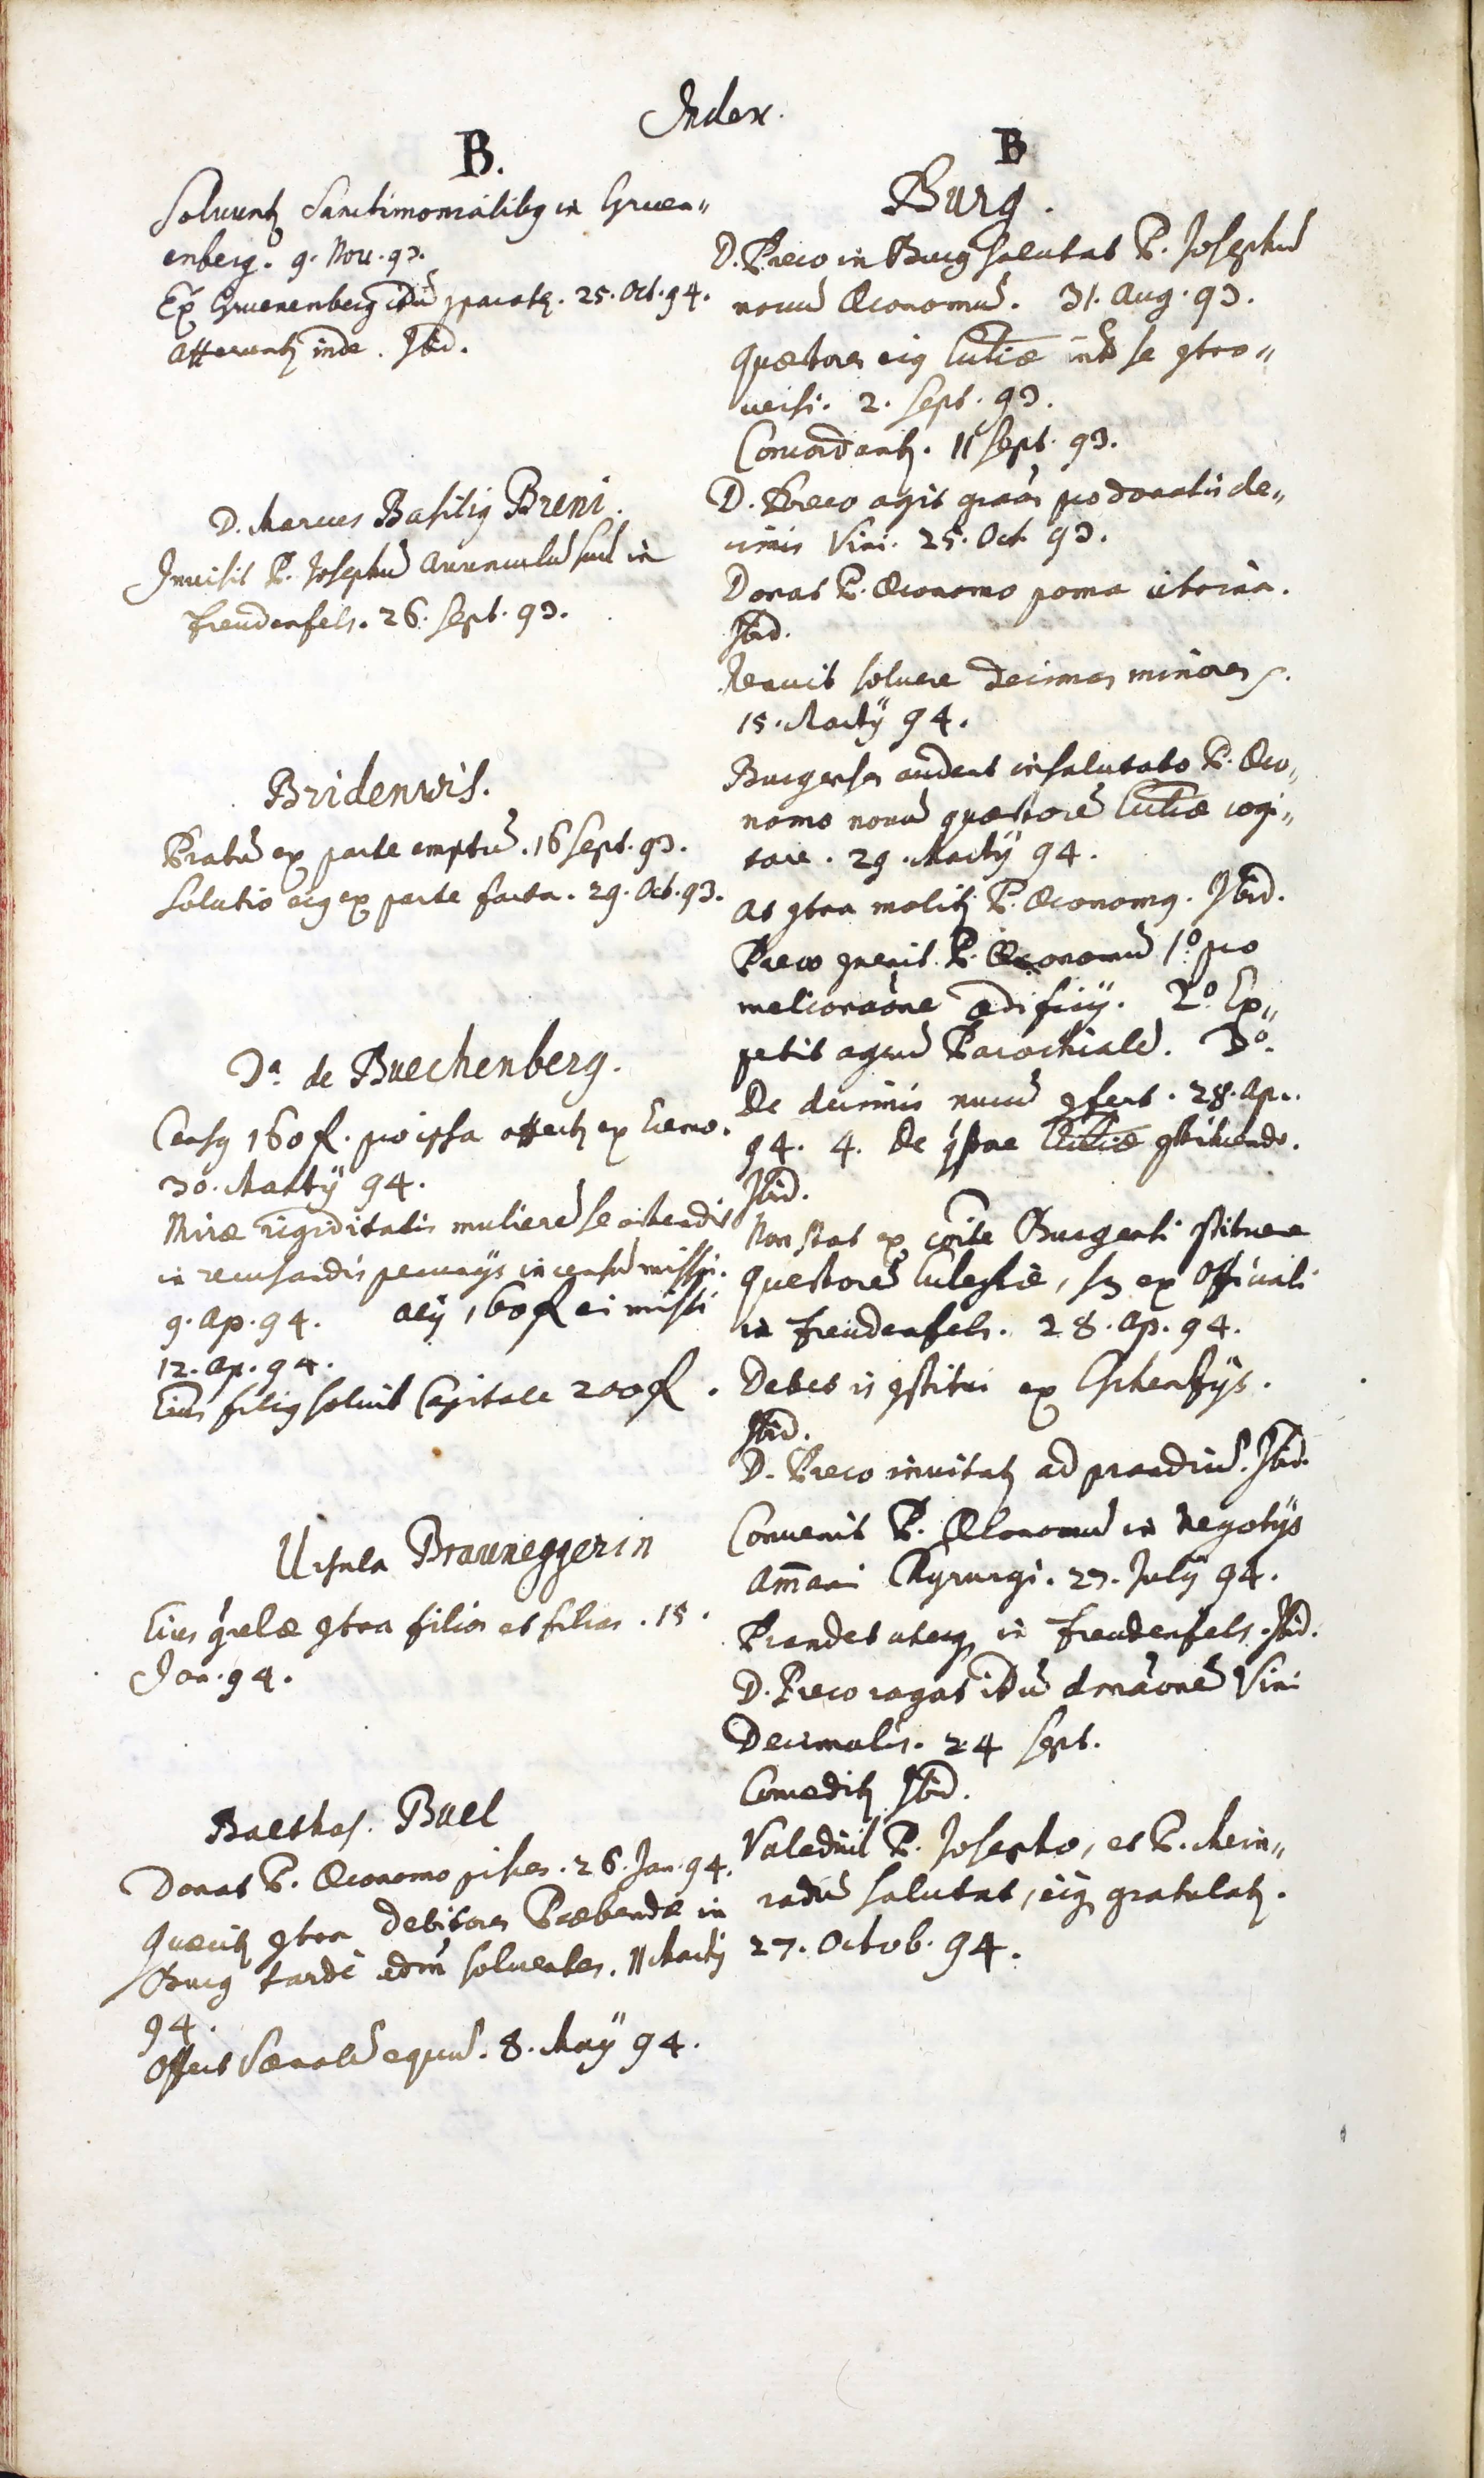 Index.
B.
Soluuntur Sanctimonialibus in Gruen„
enberg. 9. Nou. 93.
Ex Gruenenberg iterum comparatur. 25. Oct. 94.
Afferuntur inde. Ibid.
D. Marcus Basilius Breni.
Inuisit P. Josephum Auunculum suum in
Freudenfels. 26. Sept. 93.
Bridenwis.
Pratum ex parte emptum. 16 Sept. 93.
Solutio eius ex parte facta. 29. Oct. 93.
Da. de Buechenberg.
Census 160 fl. pro ipsa affertur ex Eremo.
30. Martij 94.
Miræ rigiditatis mulierem se ostendit
in recusandis pecunijs in censum missis.
9. Ap. 94. alij 160 fl ei missi
12. Ap. 94.
Eius filius soluit Capitale 200 fl.
Ursula Brauneggerin
Eius querelæ contra filios et filias. 15.
Jan. 94.
Balthas. Büel
Donat P. Œconomo pisces. 26. Jan. 94.
Queritur contra Debitores Præbendæ in
Burg tardè eidem soluentes. 11 Martij
94.
Offert Venalem equum. 8. Maij 94.
B
Burg.
D. Preco in Burg salutat P. Josephum
nouum Œconomum. 31. Aug. 93.
Quæstores eius Ecclesiæ inter se contro„
uersi. 2. Sept. 93.
Concordantur. 11 Sept. 93.
D. Preco agit gratias pro donatis de„
cimis Vini. 25. Oct. 93.
Donat P. Œconomo poma citrina.
Ibid.
Renuit soluere Decimas minores.
15. Martij 94.
Burgenses audent insalutato P. Œco„
nomo nouum quæstorem Ecclesiæ cogi„
tare. 29. Martij 94.
At contra molitur P. Œconomus. Ibid.
Preco conuenit P. Œconomum 1o. pro
melioratione ædificij. 2o. Ex„
petit agrum Parochialem. 3o.
De decimis nucum confert. 28. Ap.
94. 4. De quæstore Ecclesiæ constituendo.
Ibid.
Non stat ex communitate Burgensi constituere
Quæstorem Ecclesiæ, sed ex Officiali
in Freudenfels. 28. Ap. 94.
Debet is constitui ex Eschenzijs.
Ibid.
D. Preco inuitatur ad prandium. Ibid.
Conuenit P. Œconomum in Negotijs
Ammani Chyrurgi. 27. Julij 94.
Prandet uterque in Freudenfels. Ibid.
D. Preco rogat iterum donationem Vini
Decimalis. 24 Sept.
Conceditur Ibid.
Valedicit P. Josepho, et P. Mein„
radum salutat, eique gratulatur.
27. Octob. 94.